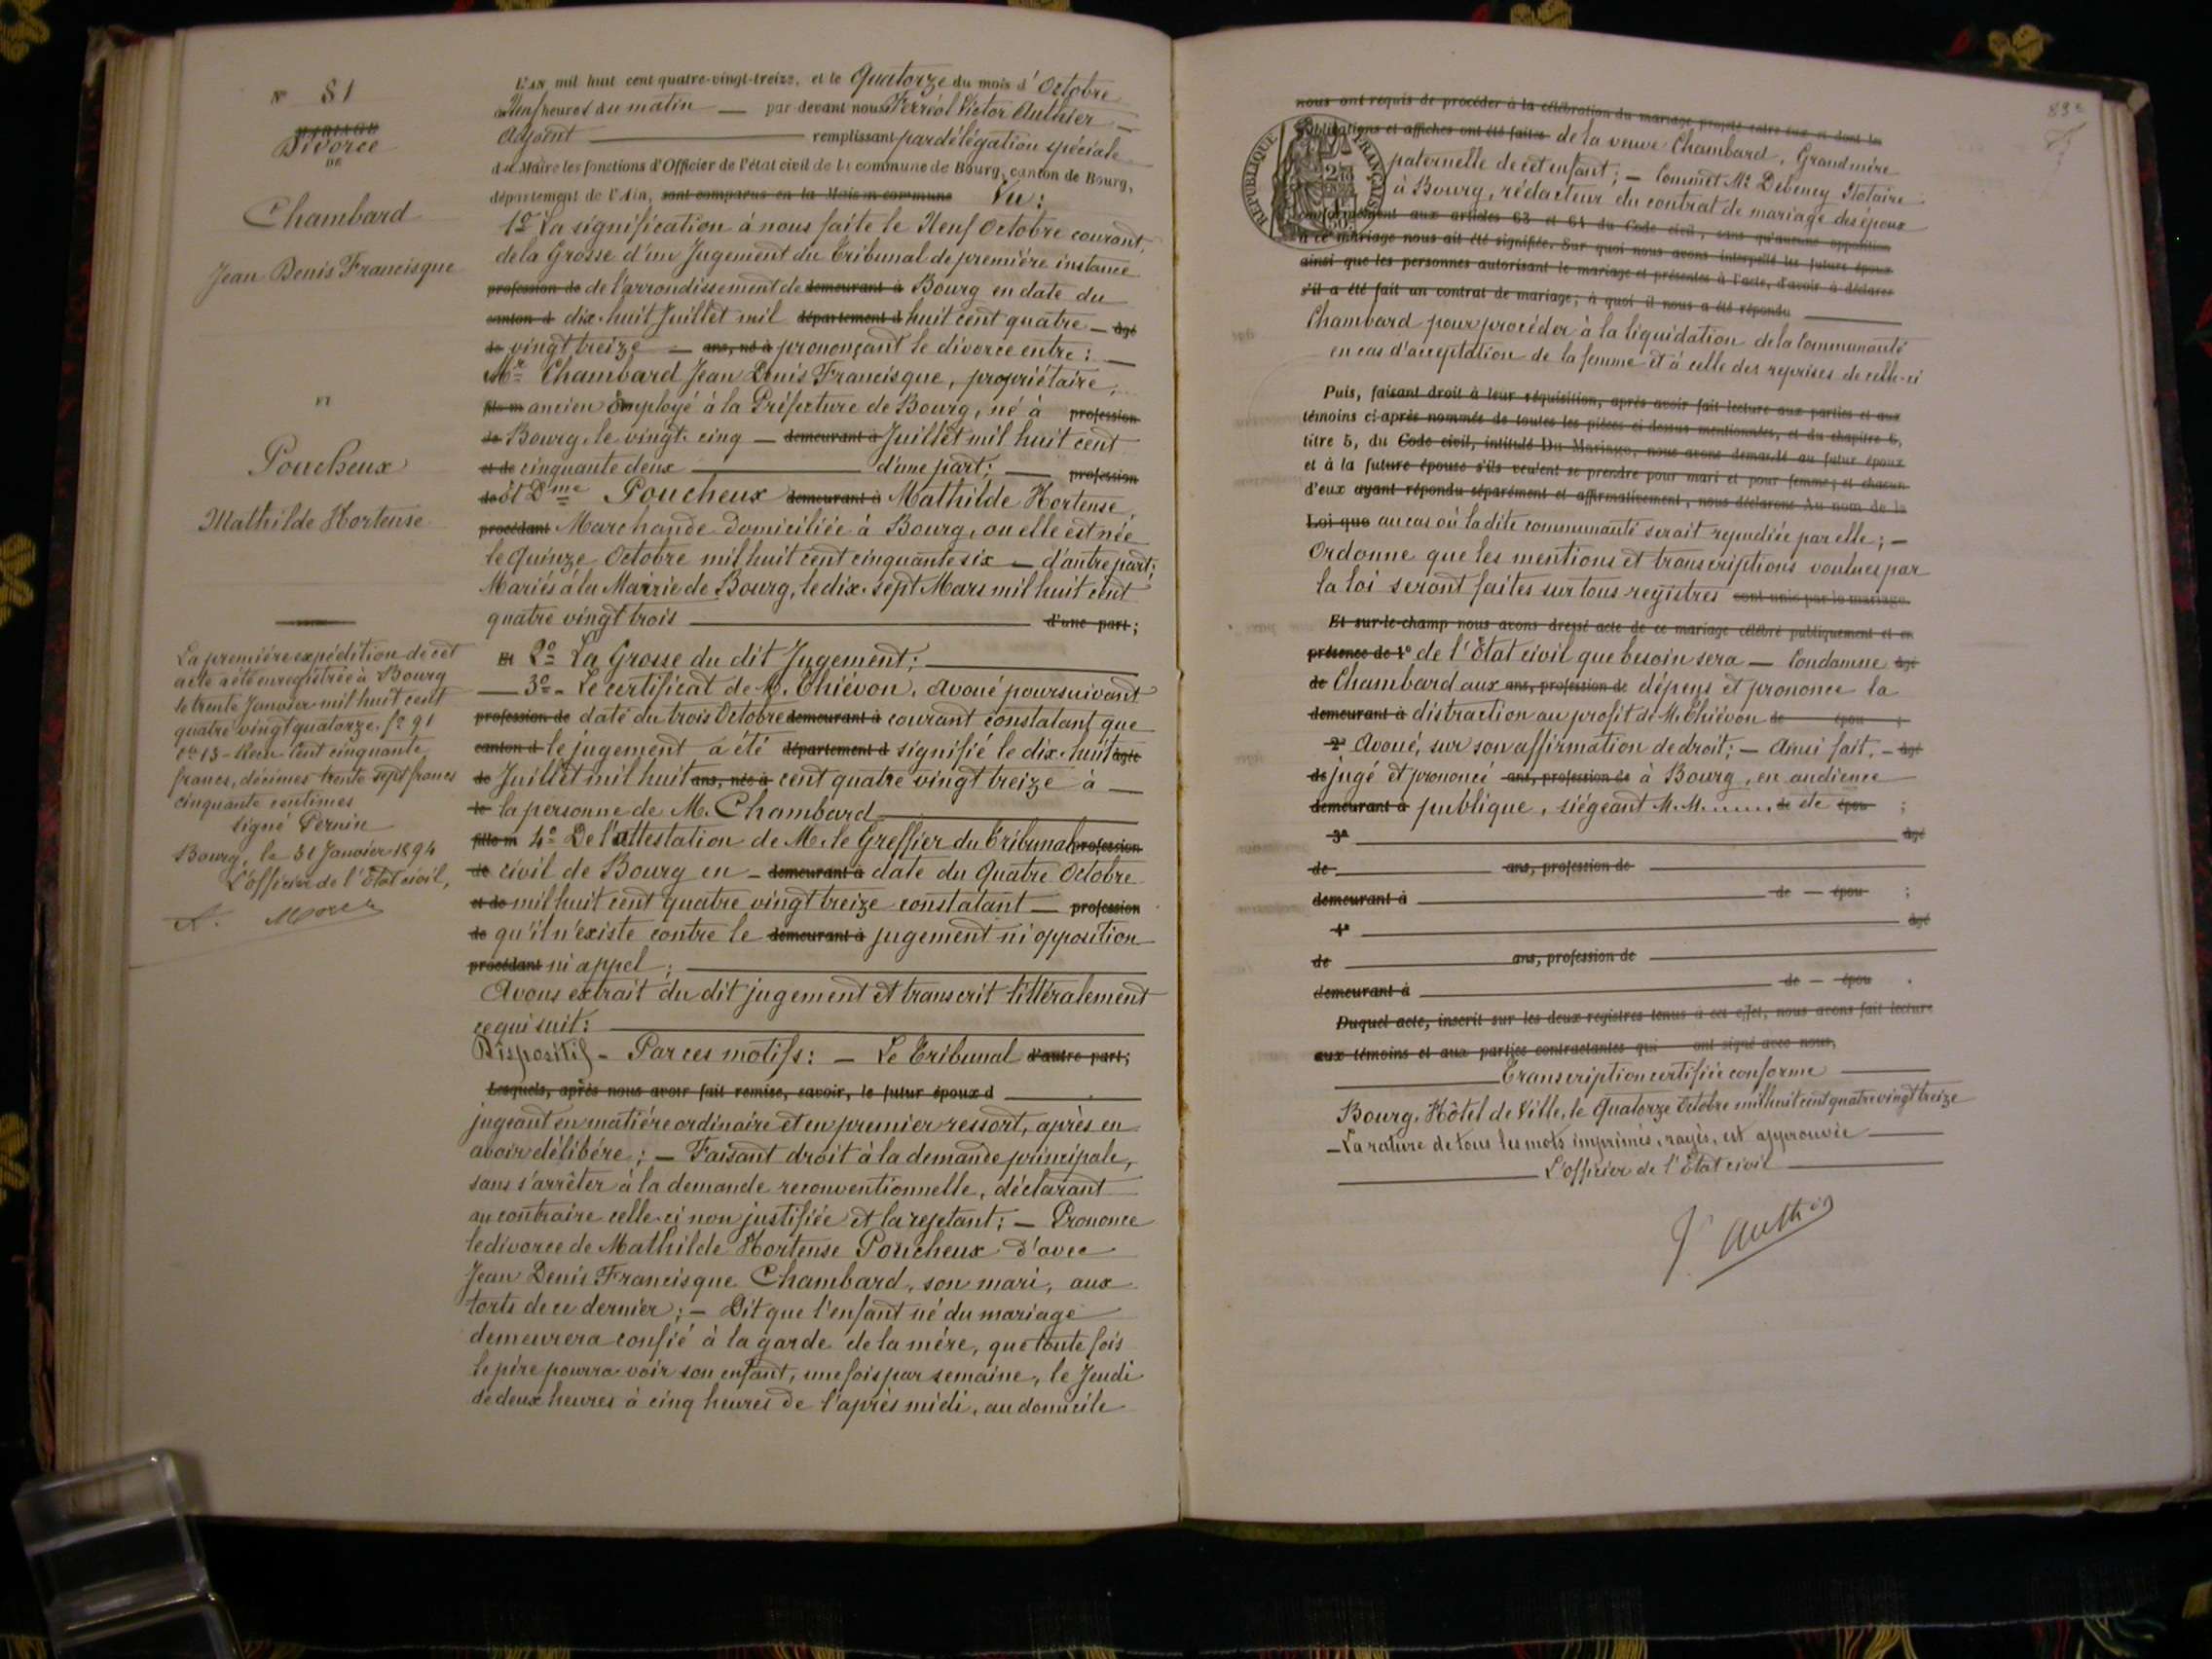 N° 81
MARIAGE
Divorce
DE
Chambard
Jean Denis Francisque
ET
Poucheux
Mathilde Hortense
La première expédition de cet
acte a été enregistrée à Bourg
le trente Janvier mil huit cent
quatre vingt quatorze. f° 91
c° 13 - Reçu Cent cinquante
francs, décimes trente sept francs
cinquante centimes
signé Pernin
Bourg, le 31 Janvier 1894
L'officier de l'Etat civil,
L'AN mil huit cent quatre-vingt-treize, et le Quatorze du mois d'Octobre
à Neuf heures du matin — par devant nous Ferréol Victor Authier —
Adjoint — remplissant par délégation spéciale
du Maire les fonctions d'Officier de l'état civil de la commune de Bourg, canton de Bourg,
département de l'Ain, sont comparus en la Maison commune Vu :
1° La signification à nous faite le Neuf Octobre courant,
de la Grosse d'un Jugement du Tribunal de première instance
profession de de l'arrondissement de demeurant à Bourg en date du
canton d dix-huit Juillet mil département d huit cent quatre — âgé
de vingt treize — ans, né à prononçant le divorce entre : —
Mr Chambard Jean Denis Francisque, propriétaire,
fils m ancien Employé à la Préfecture de Bourg, né à profession
de Bourg, le vingt-cinq — demeurant à Juillet mil huit cent
et de cinquante deux — d'une part; — profession
de et Dme Poucheux demeurant à Mathilde Hortense,
procédant Marchande domiciliée à Bourg, ou elle est née
le Quinze Octobre mil huit cent cinquante six — d'autre part;
Mariés à la Mairie de Bourg, le dix-sept Mars mil huit cent
quatre vingt trois — d'une part;
Et 2° La Grosse du dit Jugement; —
— 3° - Le certificat de M. Chiévon, Avoué poursuivant
profession de daté du trois Octobre demeurant à courant constatant que
canton d le jugement a été département d signifié le dix-huit âgée
de Juillet mil huit ans, née à cent quatre vingt treize à —
le la personne de M. Chambard —
fille m 4° De l'attestation de M. le Greffier du Tribunal profession
de civil de Bourg en — demeurant à date du Quatre Octobre
et de mil huit cent quatre vingt treize constatant — profession
de qu'il n'existe contre le demeurant à jugement ni opposition
procédant ni appel; —
Avons extrait du dit jugement et transcrit littéralement
ce qui suit : —
Dispositif - Par ces motifs : — Le Tribunal d'autre part;
Lesquels, après nous avoir fait remise, savoir, le futur époux d —
jugeant en matière ordinaire et en premier ressort, après en
avoir délibéré; — Faisant droit à la demande principale,
sans s'arrêter à la demande reconventionnelle, déclarant
au contraire celle-ci non justifiée et la rejetant; — Prononce
le divorce de Mathilde Hortense Poucheux d'avec
Jean Denis Francisque Chambard, son mari, aux
torts de ce dernier; — Dit que l'enfant né du mariage
demeurera confié à la garde de la mère, que toute fois
le père pourra voir son enfant, une fois par semaine, le Jeudi
de deux heures à cinq heures de l'après midi, au domicile
nous ont requis de procéder à la célébration du mariage projeté entre eux et dont les
publications et affiches ont été faites de la veuve Chambard, Grand'mère
paternelle de cet enfant; — Commet Me Debeney Notaire
à Bourg, rédacteur du contrat de mariage des époux
conformément aux articles 63 et 64 du Code civil, sans qu'aucune opposition
à ce mariage nous ait été signifiée. Sur quoi nous avons interpellé les futurs époux
ainsi que les personnes autorisant le mariage et présentes à l'acte, d'avoir à déclarer
s'il a été fait un contrat de mariage; à quoi il nous a été répondu —
RÉPUBLIQUE FRANÇAISE
Chambard pour procéder à la liquidation de la Communauté
en cas d'acceptation de la femme et à celle des reprises de celle-ci
Puis, faisant droit à leur réquisition, après avoir fait lecture aux parties et aux
témoins ci-après nommés de toutes les pièces ci-dessus mentionnées, et du chapitre 6,
titre 5, du Code civil, intitulé Du Mariage, nous avons demandé au futur époux
et à la future épouse s'ils veulent se prendre pour mari et pour femme; et chacun
d'eux ayant répondu séparément et affirmativement, nous déclarons Au nom de la
Loi que au cas où la dite communauté serait repudiée par elle; —
Ordonne que les mentions et transcriptions voulues par
la loi seront faites sur tous registres sont unis par le mariage.
Et sur-le-champ nous avons dressé acte de ce mariage célébré publiquement et en
présence de 1° de l'Etat civil que besoin sera — Condamne âgé
de Chambard aux ans, profession de dépens et prononce la
demeurant à distraction au profit de M. Chiévon de épou ;
2° Avoué, sur son affirmation de droit; — Ainsi fait, — âgé
de jugé et prononcé ans, profession de à Bourg, en audience
demeurant à publique, siégeant M.M. ...... de etc épou ;
3° — âgé
de — ans, profession de —
demeurant à — de — épou ;
4° — âgé
de — ans, profession de —
demeurant à — de — épou .
Duquel acte, inscrit sur les deux registres tenus à cet effet, nous avons fait lecture
aux témoins et aux parties contractantes qui ont signé avec nous,
— Transcription certifiée conforme —
Bourg, Hôtel de Ville, le Quatorze Octobre mil huit cent quatre vingt treize
— La rature de tous les mots imprimés, rayés, est approuvée —
— L'officier de l'Etat civil —
Authier